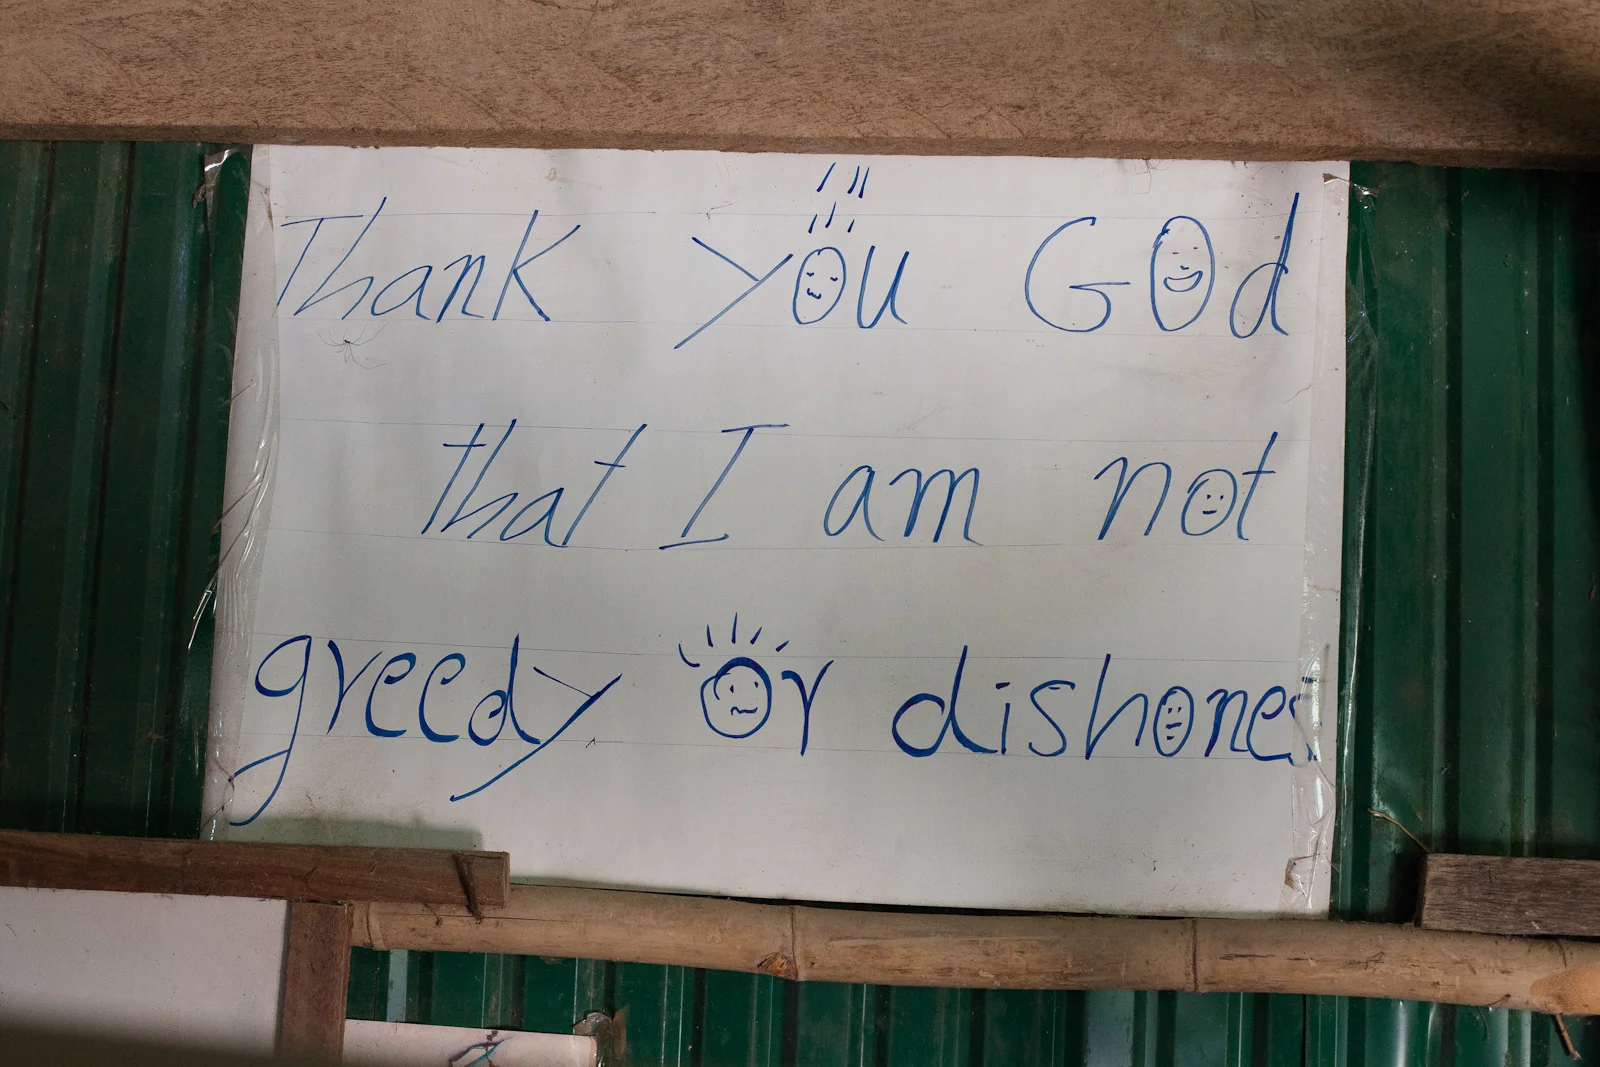 Thank you God
that I am not
greedy or dishones